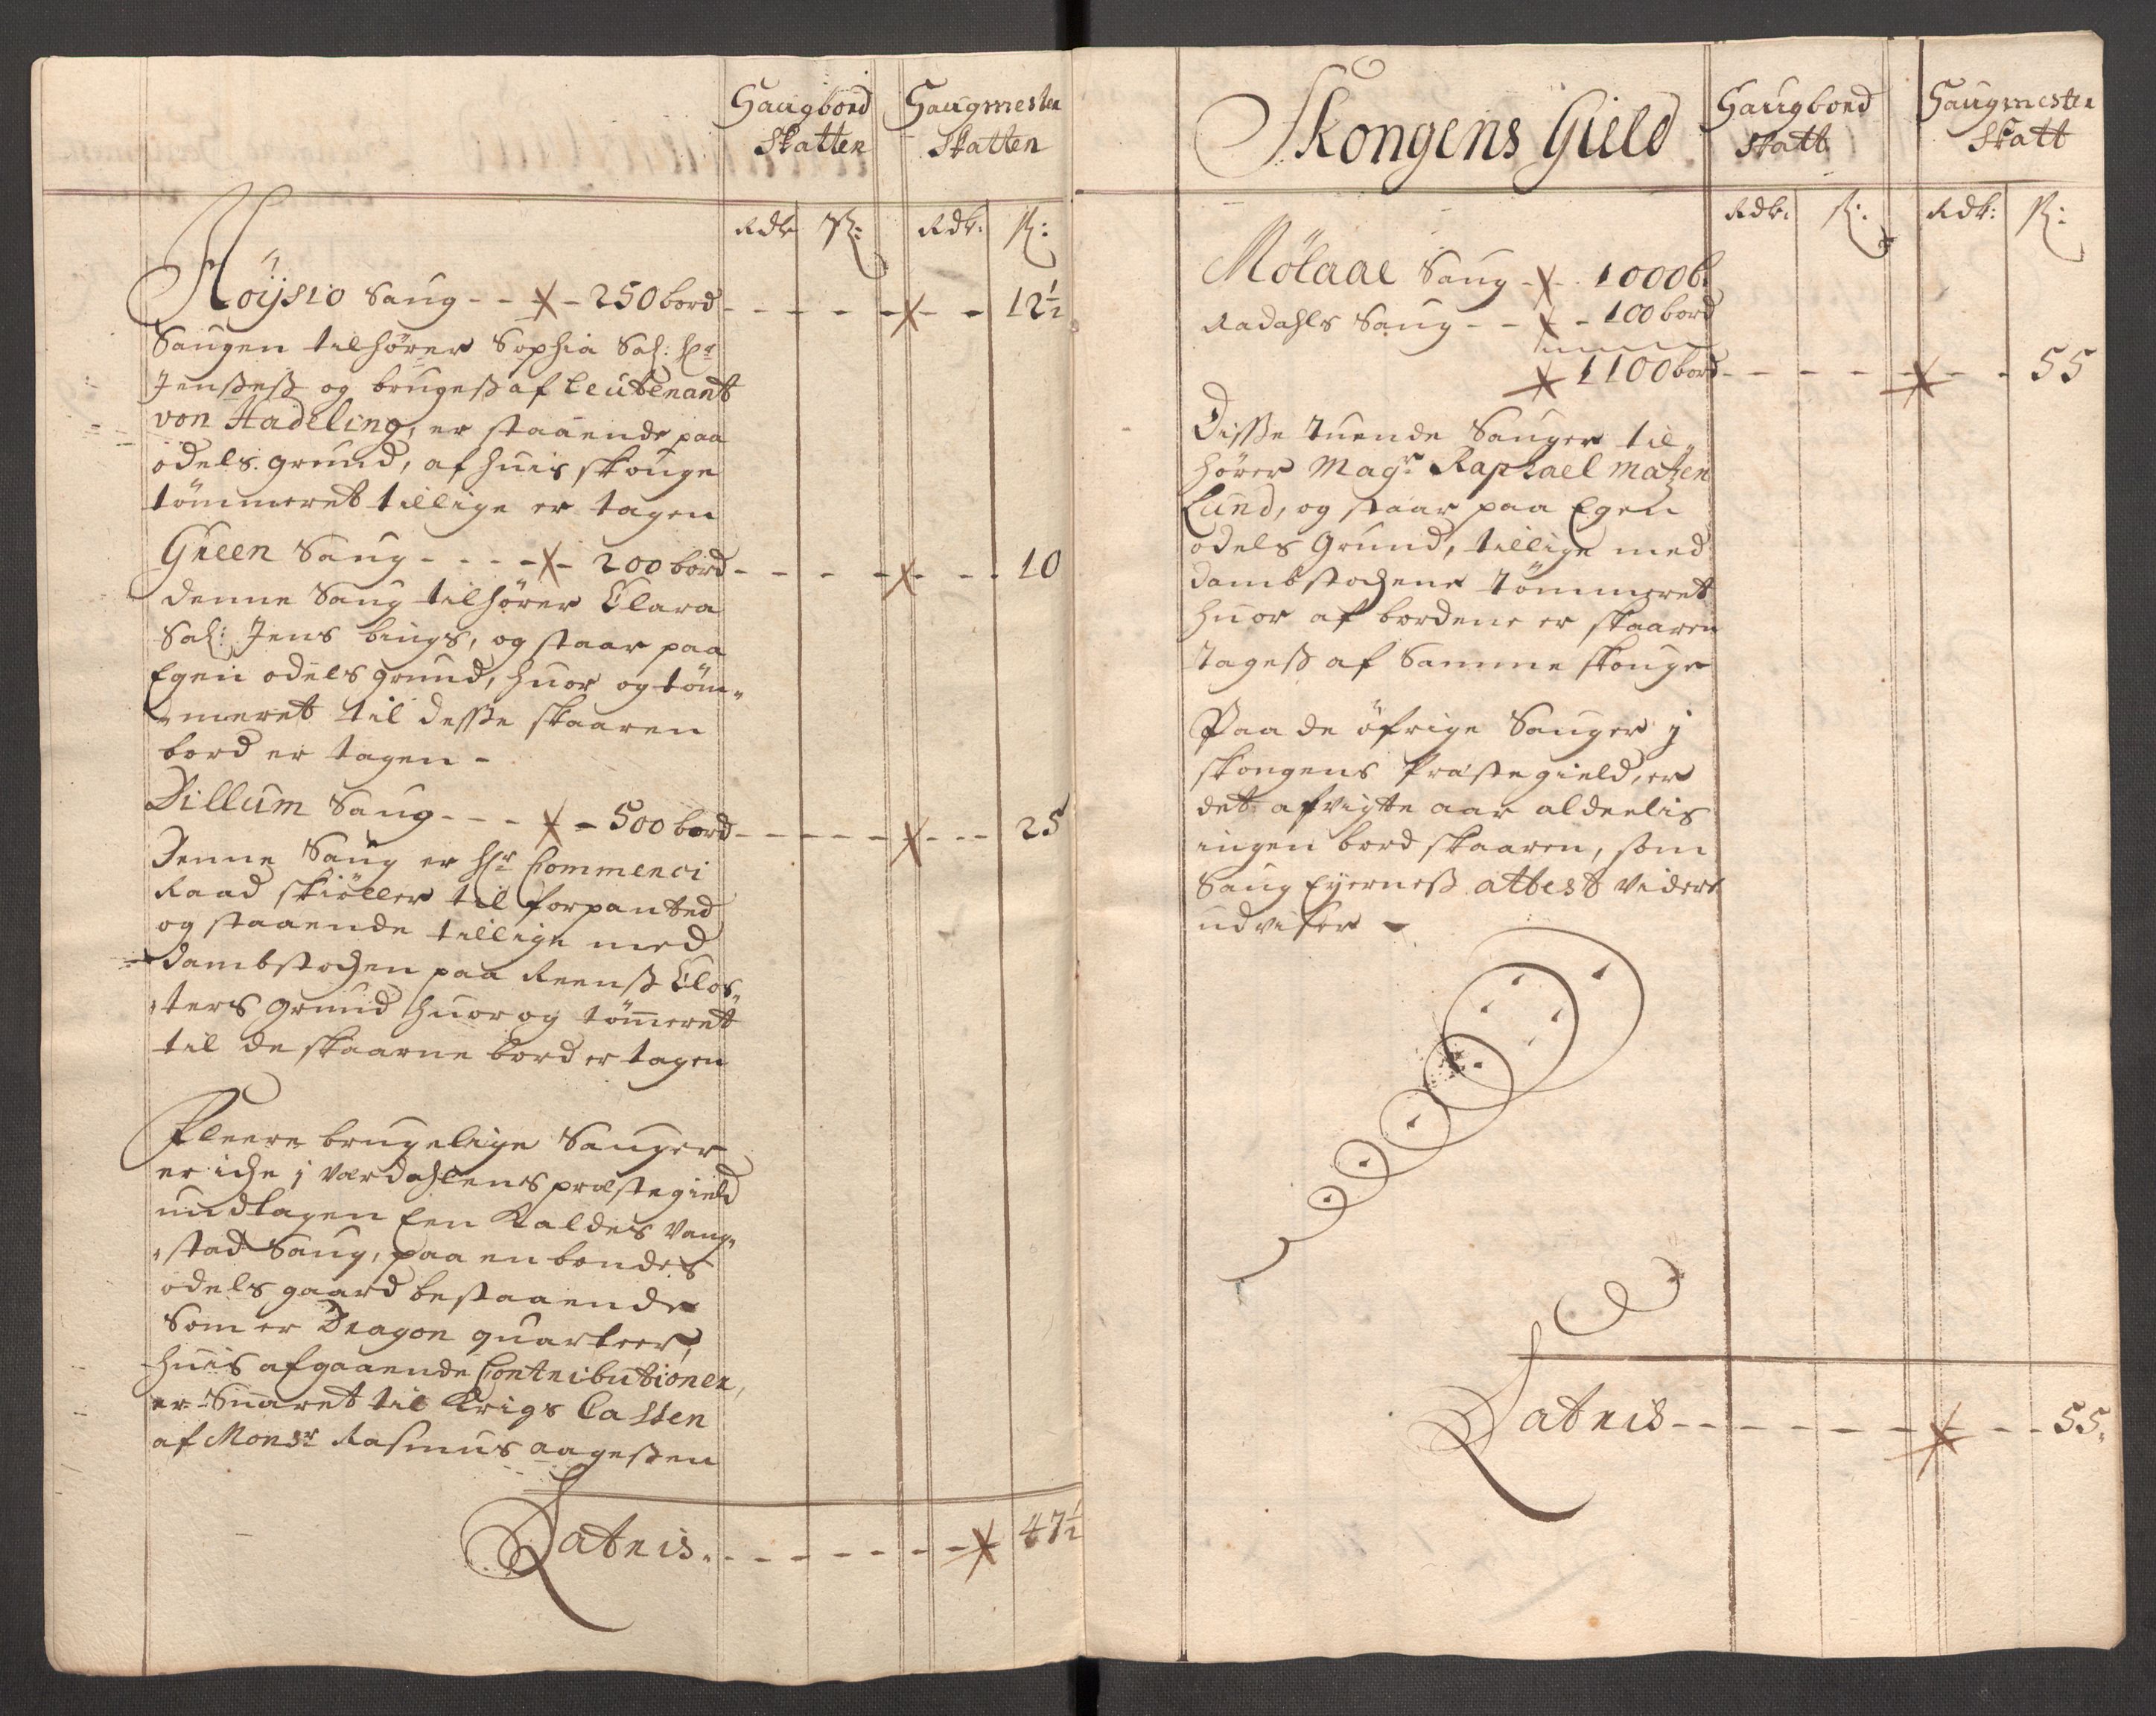 Saugbord Saugmester
Skatten Skatten
Rdr ß: Rdr: ß:
Höysiö Saug - - - 250 bord - - - - - - 12½
Saugen tilhører Sophia Sal: Hr
Jenßeß og brugeß af Leutenant
von Hadeling, er staaende paa
odels grund, af huis skouge
tömmeret tillige er tagen
Green Saug - - - - 200 bord - - - - - - 10
denne Saug tilhører Clara
Sal: Jens bings, og staar paa
Egen odels grund, huor og töm„
„meret til desse skaaren
bord er tagen -
Dillum Saug - - - - 500 bord - - - - - - - - 25
Denne Saug er Hr Commerci
Raad skiöller til forpanted
og staaende tillige med
dambstochen paa Reenß Clos„
„ters grund huor og tömmeret
til de skaarne bord er tagen
Fleere brugelige Sauger
er iche j Værdahlens præstegield
undtagen Een Kaldes Vang„
„stad Saug, paa en bondes
odels gaard bestaaende
Som er Dragon quarteer,
huis afgaaende Contributioner,
er Suaret til Krigs Cassen
af Monsr Rasmus aageßen
Lateris. - - - - - - - 47½
Skongens Gield Saugbord Saugmester
skatt Skatt
Rdr: ß: Rdr: ß:
Mölaae Saug - - 1000 b.
Radahls Saug - - - 100 bord
1100 bord - - - - - - 55
Disse tuende Sauger til„
hører Magr Raphael Matzen
Lund, og staar paa Egen
odels Grund, tillige med
dambstochene tömmeret
huor af bordene er skaaren
tageß af Samme skouge
Paa de öfrige Sauger j
skongens Præstegield, er
det afvigte aar aldeelis
ingen bord skaaren, som
Saug Eyerneß attest videre
udviser -
Lateris - - - - - - - - 55.